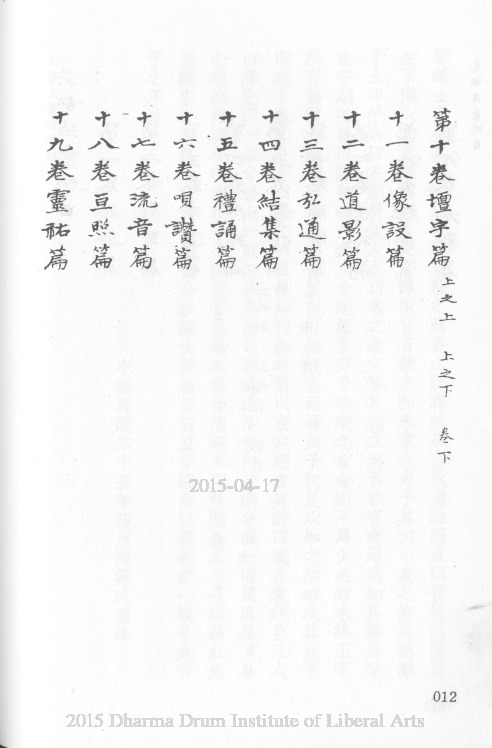 第十卷壇宇篇 上之上 上之下 卷下
十一卷像設篇
十二卷道影篇
十三卷弘通篇
十四卷結集篇
十五卷禮誦篇
十六卷唄讚篇
十七卷流音篇
十八卷亘照篇
十九卷靈祐篇
2015-04-17
012
2015 Dharma Drum Institute of Liberal Arts